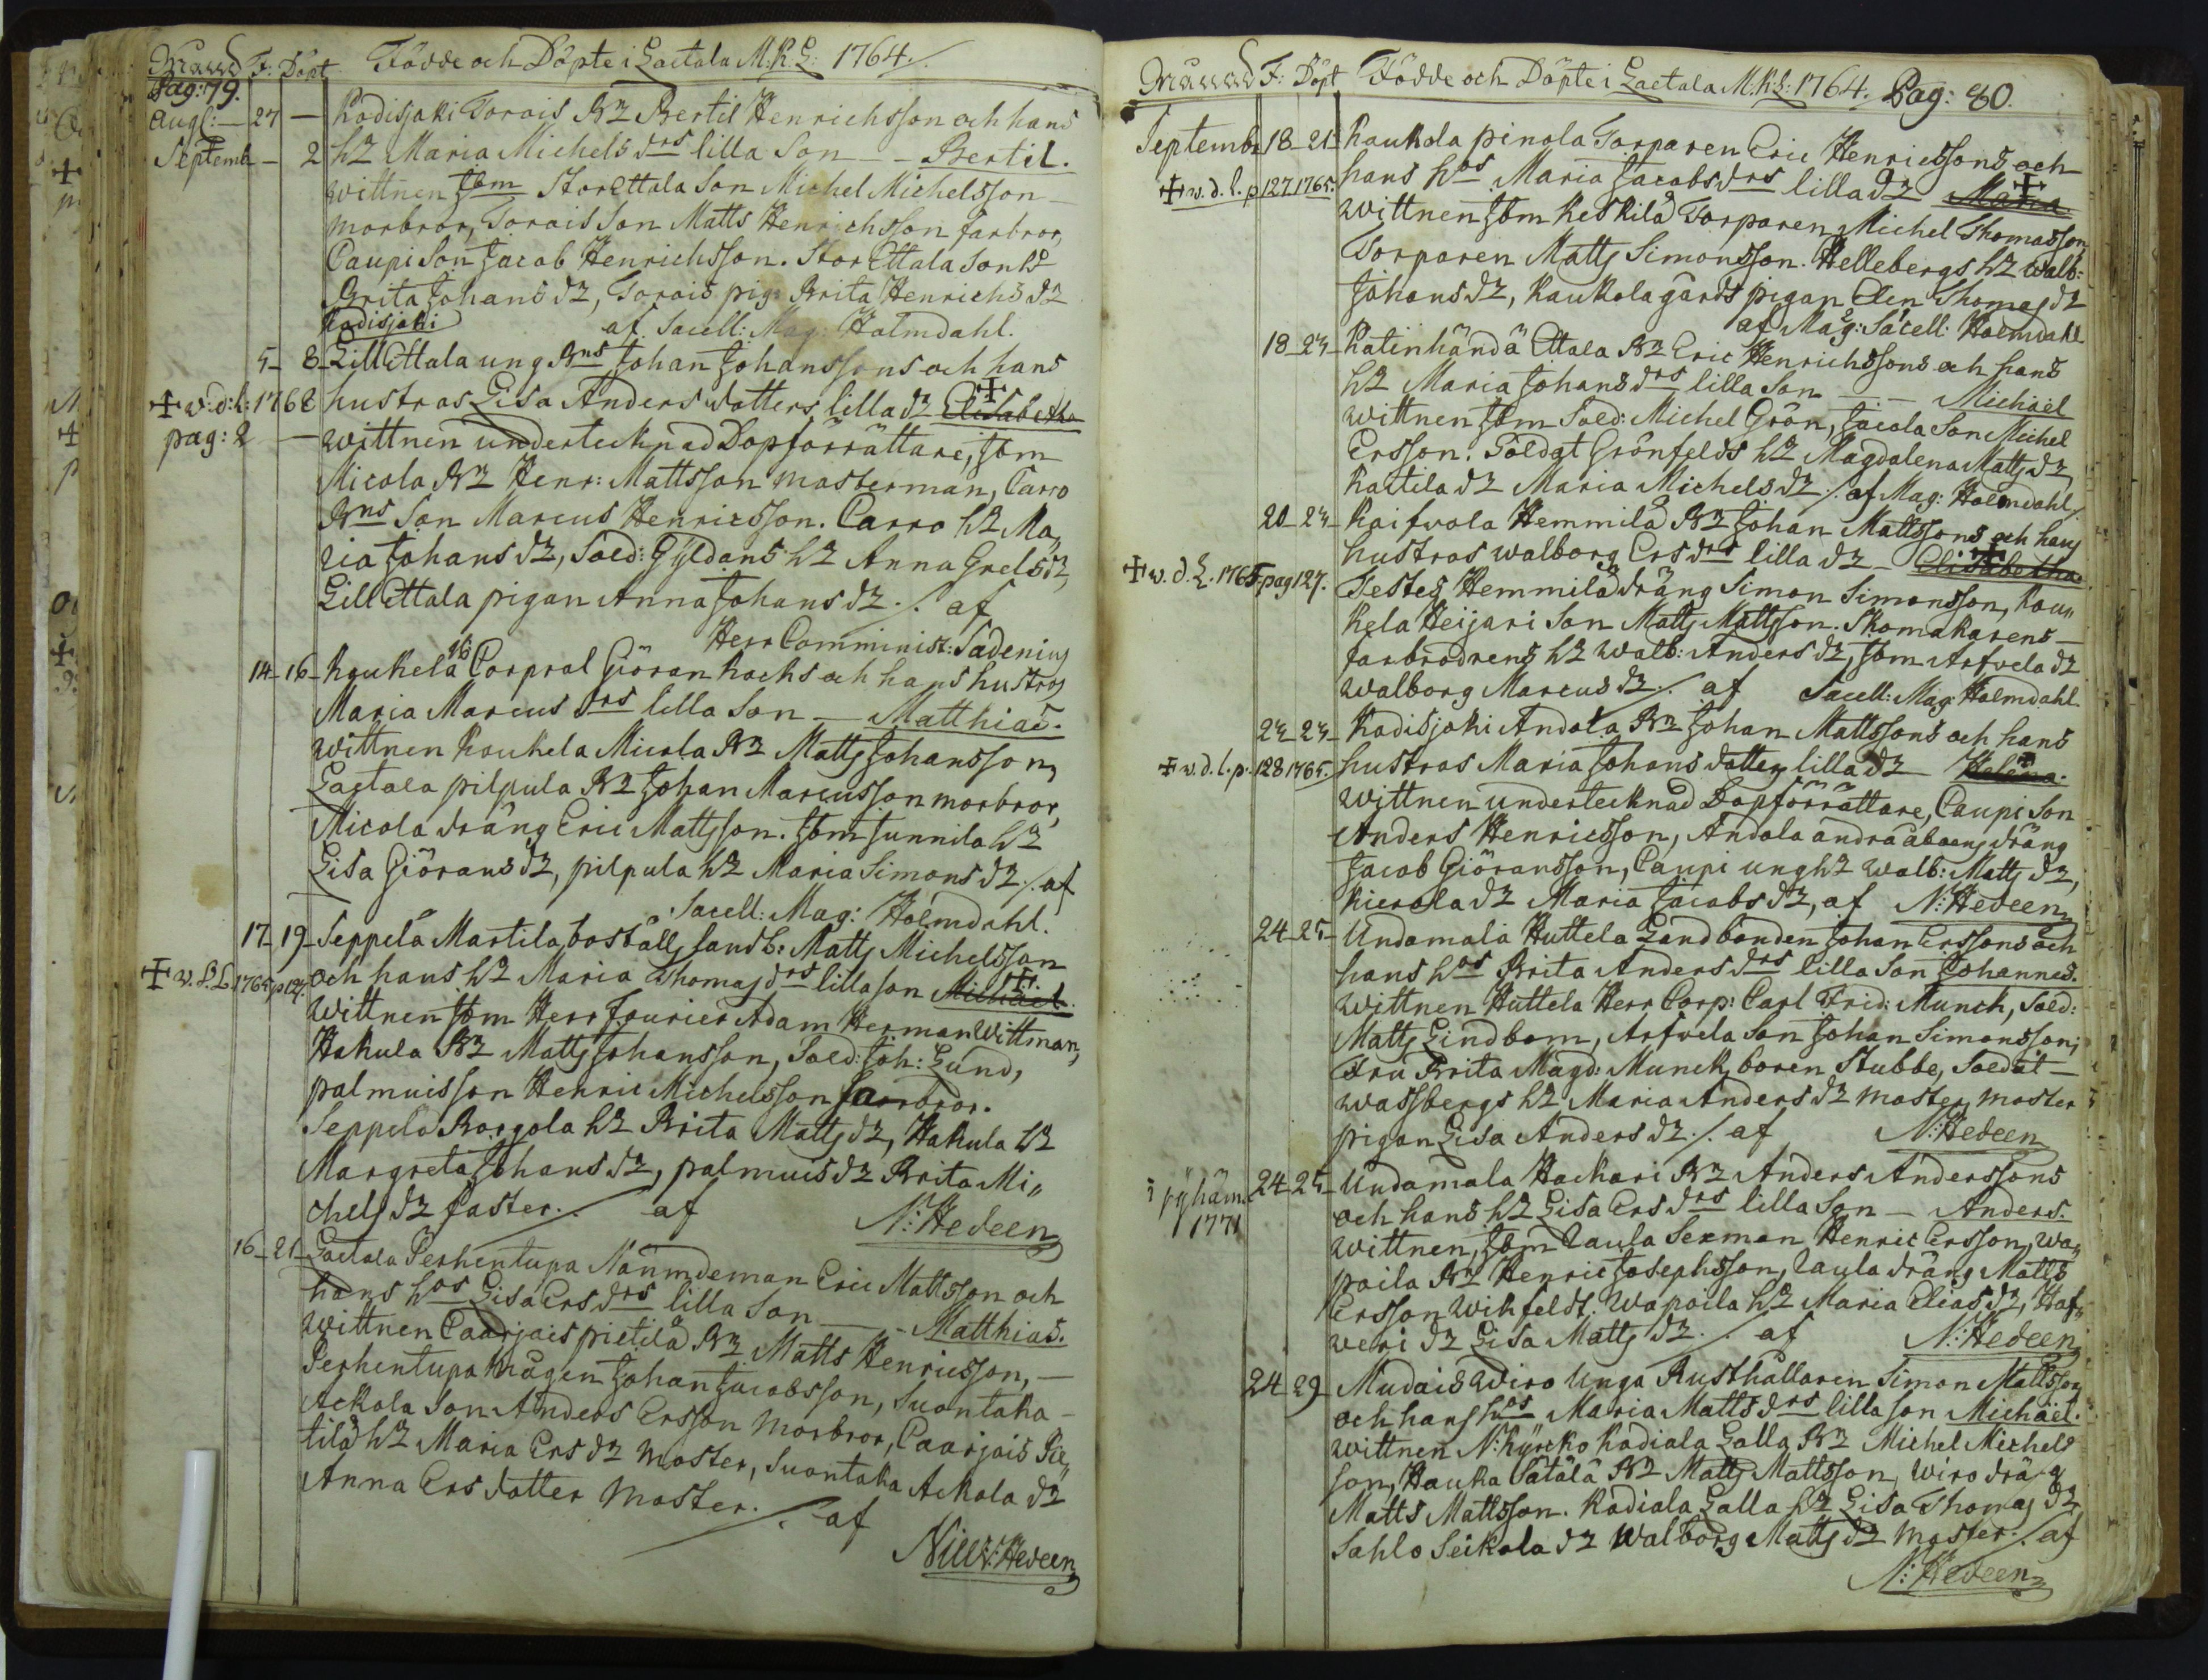 Månad F: Döpt Födde och Döpte i Lactala M.K.G: 1764.
Pag: 79.
Aug: — 27 — Kodisjoki Torois Bz Bertil Henrichsson och hans
Septemb — 2 hz Maria Michels drs lilla Son — Bertil.
wittnen som Storettala Son Michel Michelsson —
morbror, Torois Son Matts Henrichsson farbror,
Caupi Son Jacob Henrichsson. Stor Ettala Son hu
Brita Johans dz, Torois pig: Brita Henrichs dz
Kodisjoki af Sacell: Mag: Holmdahl.
5 — 8 Lill Ettala ung Bns Johan Johanssons och hans
✝ v: d: l: 1768 hustros Lisa Anders dotters lilla dz Elisabetha ✝
pag: 2 — wittnen undertecknad Dopförrättare, som
Micola Bz Henr: Mattsson mosterman, Carro
Bns Son Marcus Henricsson. Carro hz Ma„
ria Johans dz, Sold: Gyldans hz Anna Grels dz,
Lill Ettala pigan Anna Johans dz ./. af
Herr Comminist: Sadenius
14 — 16 — Koukela Corporal Giöran Kocks och hans hustros
Maria Marcus drs lilla Son — Matthias.
wittnen Koukela Micola Bz Matts Johansson,
Lactala pilpula Bz Johan Marcusson morbror,
Micola dräng Eric Mattsson. som Junnila hz
Lisa Giörans dz, pilpula hz Maria Simons dz ./. af
Sacell: Mag: Holmdahl.
17 — 19 — Seppelä Martila bosbälls landb: Matts Michelsson
✝ v. D. L. 1765 p 127. och hans hz Maria Thomas drs lilla son Michael ✝.
wittnen som Herr fourier Adam Herman Wittman,
Hakula Bz Matts Johansson, Sold: Joh: Lund,
palmuisson Henric Michelsson farbror.
Seppelö Borgola hz Brita Matts dz, Hakula hz
Margreta Johans dz, palmuis dz Brita Mi„
chels dz faster ./. af N: Hedeen
16 — 21 — Lactala Perhentupa Nämndeman Eric Mattsson och
hans hos Lisa Ers drs lilla Son — Matthias.
wittnen Caarjois pietilä Bz Matts Henricsson, —
Perhentupa mågen Johan Jacobsson, Suontaka —
Ackola Son Anders Ersson morbror, Caarjois Pie„
tilä hz Maria Ers dz moster, Suontaka Ackola dz
Anna Ers dotter moster. ./. af
Nils N: Hedeen
Månad F: Döpt Födde och Döpte i Lactala M.K.G: 1764. Pag: 80.
Septembr 18 — 21 Kaukola pinola Torparen Eric Henricssons och
✝ v. d. l. p 127 1765. hans hos Maria Jacobs drs lilla dz Maria ✝
wittnen som Keskilä Torparen Michel Thomasson
Torparen Matts Simonsson. Hellebergs hz Walb:
Johans dz, Kaukola gårds pigan Elen Thomas dz
af Mag: Sacell: Holmdahl
18 — 23 — Katinhändä Ettala Bz Eric Henrichssons och hans
hz Maria Johans drs lilla Son — Michael
wittnen som Sold: Michel Grön, Jacola Son Michel
Ersson. Soldat Grönfelds hz Magdalena Matts dz,
Kartila dz Maria Michels dz ./. af Mag: Holmdahl.
20 — 23 — Kaifvola Hemmilä Bz Johan Mattssons och hans
hustros walborg Ers drs lilla dz — Elisabetha ✝
✝ v. d. L. 1765 pag 127. Testes Hemmilä dräng Simon Simonsson, Kau„
kela Heijari Son Matts Mattsson. Skomakarens —
farbrodrens hz walb: Anders dz, som Arfvela dz
Walborg Marcus dz ./. af Sacell: Mag: Holmdahl.
23 — 23 — Kodisjoki Andola Bz Johan Mattssons och hans
✝ v. d. l. p. 128 1765. hustros Maria Johans dotters lilla dz Helena ✝.
wittnen undertecknad Dopförrättare, Caupi Son
Anders Henricsson, Andola andra åboens dräng
Jacob Giöransson, Caupi ung hz walb: Matts dz,
Kierola dz Maria Jacobs dz, af N: Hedeen
24 — 25 — Undamala Huttela Landbonden Johan Erssons och
hans hos Brita Anders drs lilla Son Johannes.
wittnen Huttela Herr Corp: Carl Frid: Munck, Sold:
Matts Lindbom, Arfvela Son Johan Simonsson,
Fru Brita Magd: Munck, boren Stubbe, Soldat —
wassbergs hz Maria Anders dz moster, moster
pigan Lisa Anders dz ./. af N: Hedeen
i pyhäm 1771 24 — 25 — Undamala Hackari Bz Anders Anderssons
och hans hz Lisa Ers drs lilla Son — Anders.
wittnen, som Laula Sexman Henric Ersson, Wa„
poila Bz Henric Josephsson, Laula dräng Matts
Ersson Wikfeldt. Wapoila hz Maria Elias dz, Haf„
weri dz Lisa Matts dz ./. af N: Hedeen
24 — 29 Mudais Wiro Unga Rusthållaren Simon Mattsson
och hans hus Maria Matts drs lilla son Michaël.
wittnen N: Kyrcko Kodiala Lalla Bz Michel Michels
son, Hauka Sätälä Bz Matts Mattsson, Wiro dräng
Matts Mattsson. Kodiala Lalla hz Lisa Thomas dz
Sahlo Seikola dz Walborg Matts dz moster ./. af
N: Hedeen